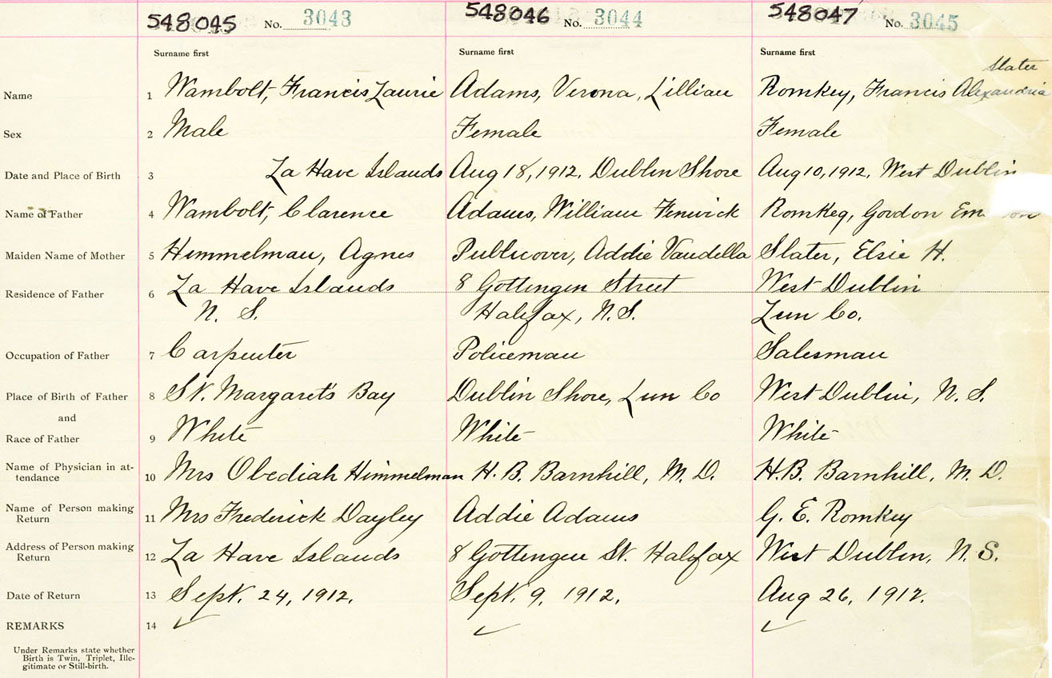 548045 No. 3043 548046 No. 3044 548047 No. 3045
Surname first Surname first Surname first
Slater
Name 1 Wambolt, Francis Laurie Adams, Verona, Lillian Romkey, Francis Alexandria
Sex 2 Male Female Female
Date and Place of Birth 3 La Have Islands Aug 18, 1912, Dublin Shore Aug 10, 1912, West Dublin
Name of Father 4 Wambolt, Clarence Adams, William Fenwick Romkey, Gordon
Maiden Name of Mother 5 Himmelman, Agnes Publicover, Addie Vandella Slater, Elsie H.
Residence of Father 6 La Have Islands 8 Gottingen Street West Dublin
N. S. Halifax, N.S. Lun Co.
Occupation of Father 7 Carpenter Policeman Salesman
Place of Birth of Father 8 St. Margaret's Bay Dublin Shore, Lun Co West Dublin, N. S.
and
Race of Father 9 White White White
Name of Physician in at-
tendance 10 Mrs Obediah Himmelman H. B. Barnhill, M. D. H.B. Barnhill, M. D.
Name of Person making
Return 11 Mrs Frederick Dayley Addie Adams G. E. Romkey
Address of Person making
Return 12 La Have Islands 8 Gottingen St. Halifax West Dublin, N. S.
Date of Return 13 Sept. 24, 1912. Sept. 9, 1912. Aug 26, 1912.
REMARKS 14
Under Remarks state whether
Birth is Twin, Triplet, Ille-
gitimate or Still-birth.